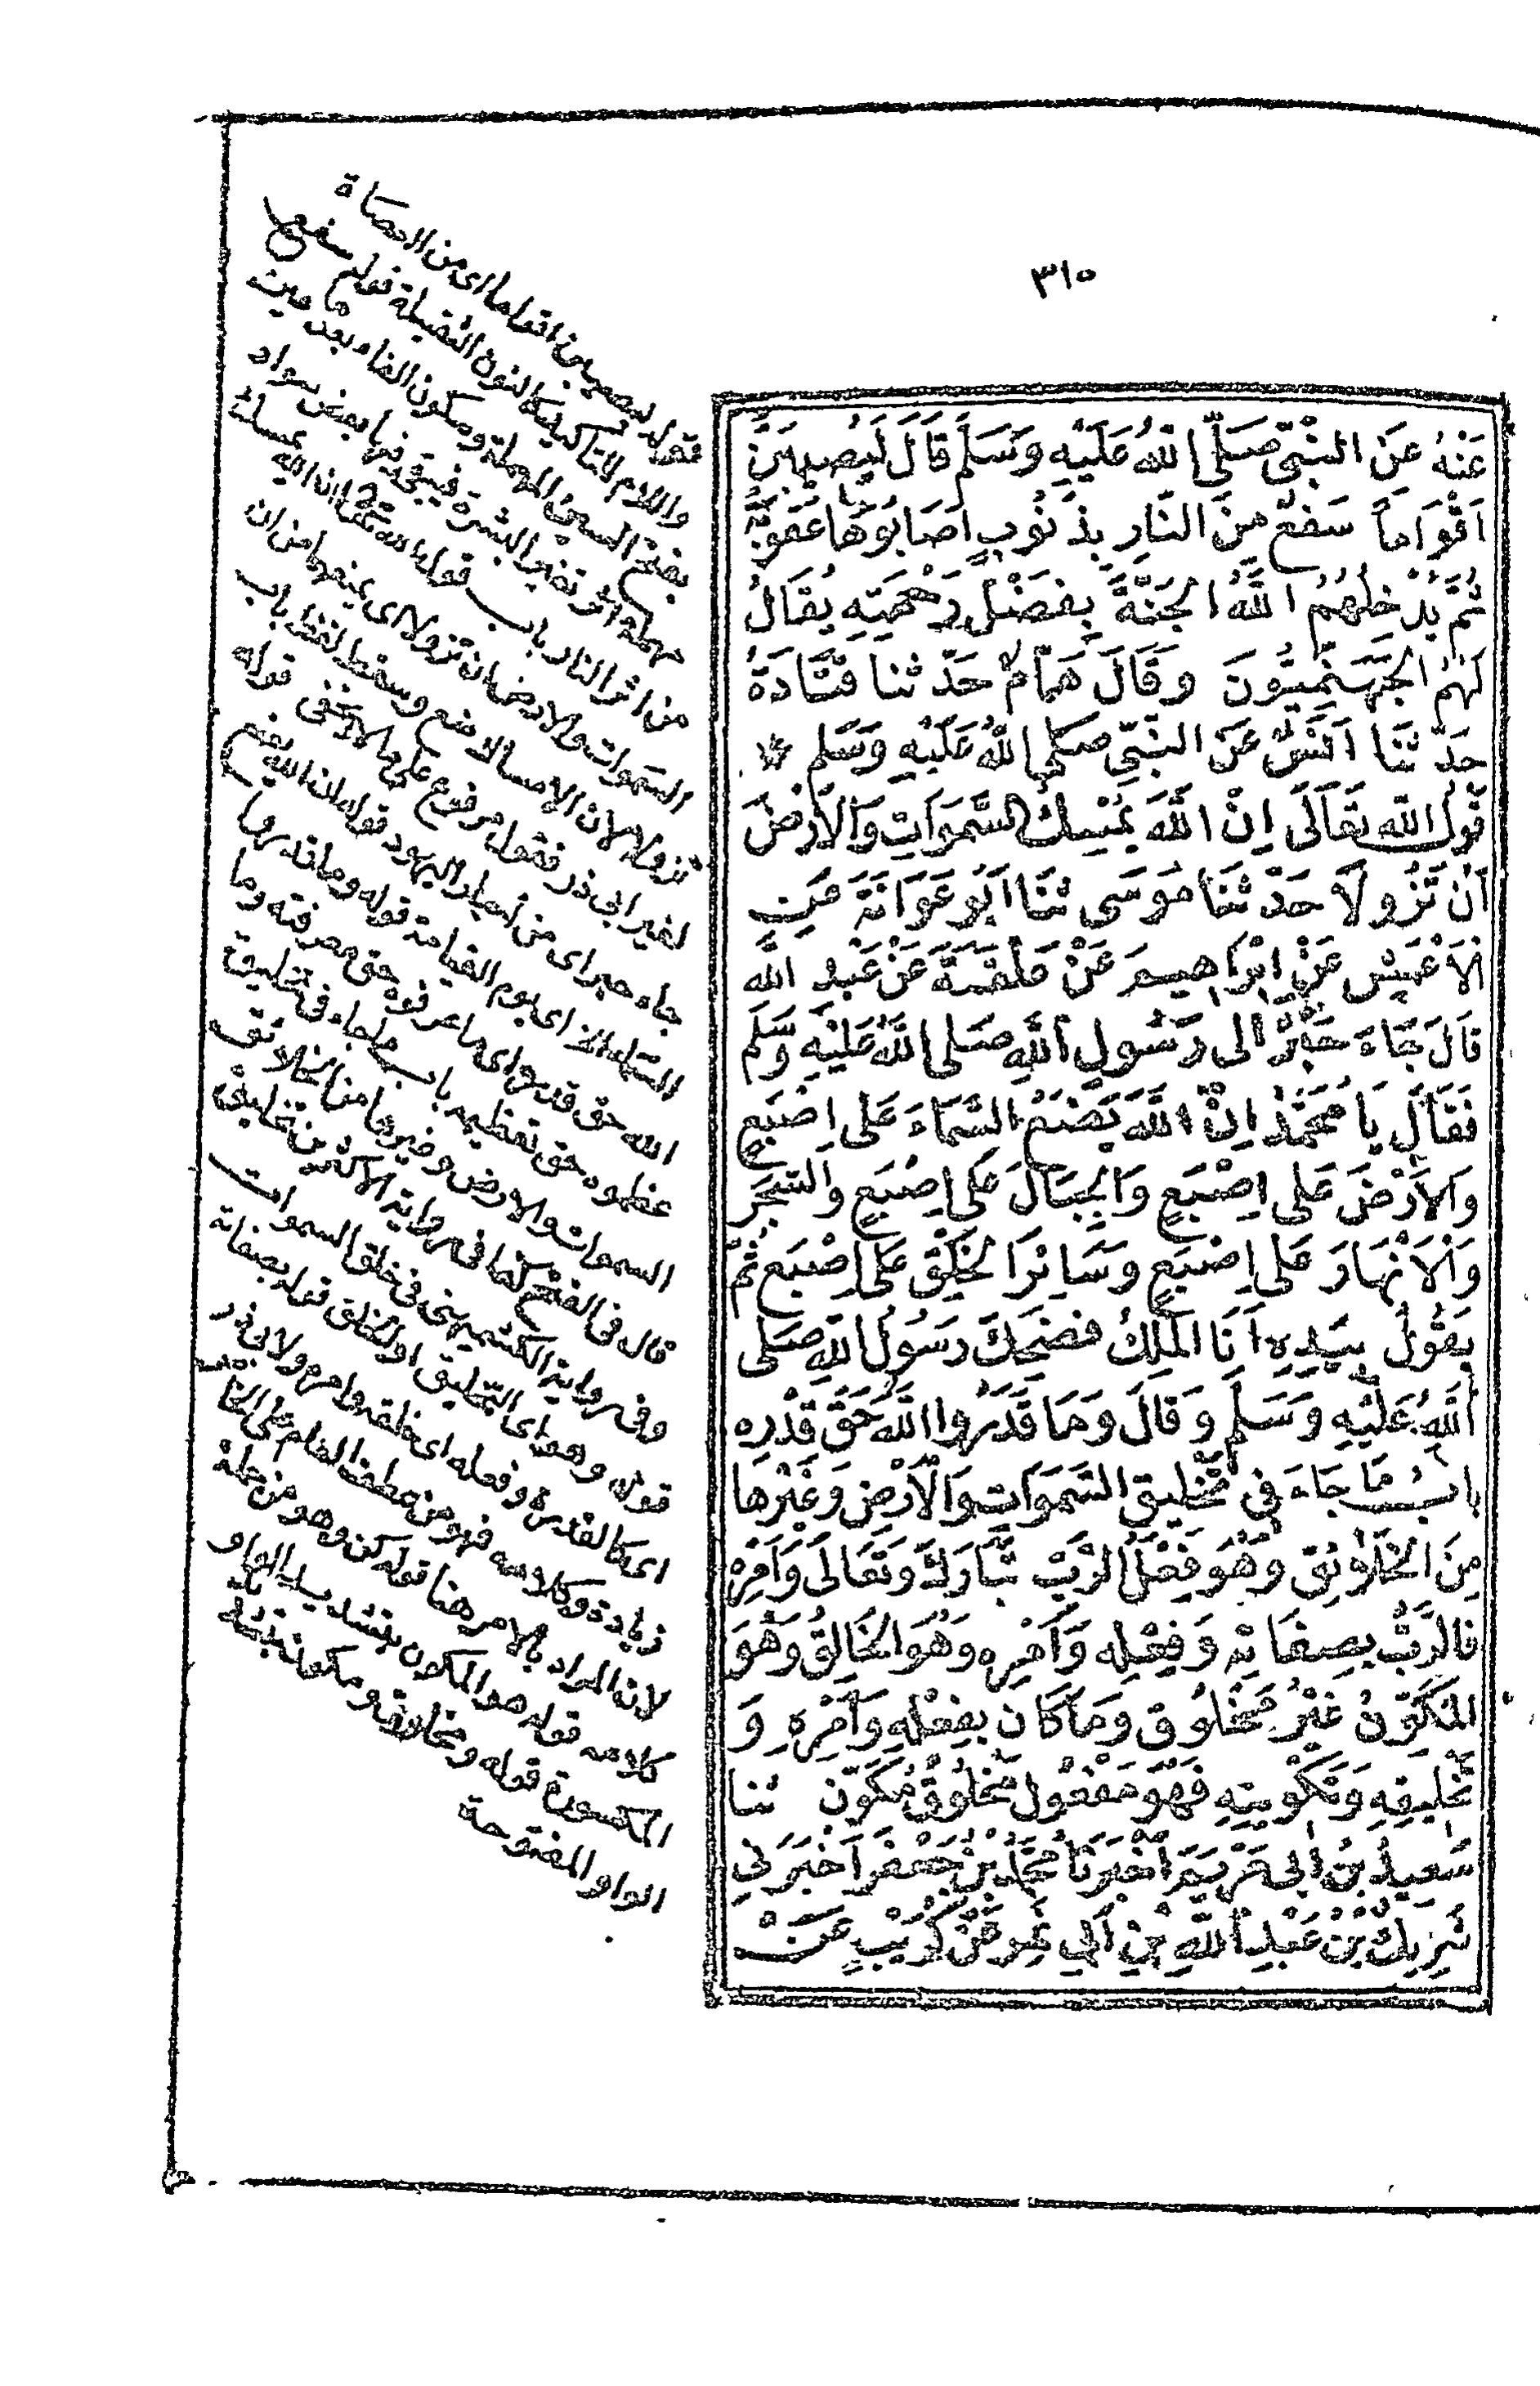 ٣١٥
عَنْهُ عَنِ النَّبِيِّ صَلَّى اللَّهُ عَلَيْهِ وَسَلَّمَ قَالَ لَيُصِيبَنَّ
اَقْوَاماً سَفْعٌ مِنَ النَّارِ بِذُنُوبٍ اَصَابُوهَا عُقُوبَةً
ثُمَّ يُدْخِلُهُمُ اللَّهُ الْجَنَّةَ بِفَضْلِ رَحْمَتِهِ يُقَالُ
لَهُمُ الْجَهَنَّمِيُّونَ وَقَالَ هَمَّامٌ حَدَّثنا قَتَادَةُ
حَدَّثَنَا اَنَسٌ عَنِ النَّبِيِّ صَلَّى اللَّهُ عَلَيْهِ وَسَلَّم
قَوْلِ اللَّهِ تَعَالَى اِنَّ اللَّهَ يُمْسِكُ السَّمَوَاتِ وَالْاَرْضَ
اَنْ تَزُولَا حَدَّثَنَا مُوسَى ثَنَا اَبُو عَوَانَةَ عَنِ
الْاَعْمَشِ عَنْ اِبْرَاهِيمَ عَنْ عَلْقَمَةَ عَنْ عَبْدِ اللَّه
قَالَ جَاءَ حَبْرٌ اِلَى رَسُولِ اللَّهِ صَلَى اللَّهُ عَلَيْهِ وَسَلَّمَ
فَقَالَ يَا مُحَمَّدُ اِنَّ اللَّهَ يَضَعُ السَّمَاءَ عَلَى اِصْبَعٍ
وَالْاَرْضَ عَلَى اِصْبَعٍ وَالْجِبَالَ عَلَى اِصْبَعٍ وَالشَّجَرَ
وَالْاَنْهَارَ عَلَى اِصْبَعٍ وَسَائِرَ الْخَلْقِ عَلَى اِصْبَعٍ ثُمَّ
يَقُولُ بِيَدِهِ اَنَا الْمَلِكُ فَضَحِكَ رَسُولُ اللَّهِ صَلَى
اللَّهُ عَلَيْهِ وَسَلَّمَ وَقَالَ وَمَا قَدَرُوا اللَّهَ حَقَّ قَدْرِهِ
بابُ مَا جَاءَ فِي تَخْلِيقِ السَّمَوَاتِ وَالْاَرْضِ وَغَيْرِهَا
مِنَ الْخَلَائِقِ وَهُوَ فِعْلُ الرَّبِّ تَبَارَكَ وَتَعَالَى وَاَمْرُهُ
فَالرَّبُّ بِصِفَاتِهِ وَفِعْلِهِ وَاَمْرِهِ وَهُوَ الْخَالِقُ وَهُوَ
الْمُكَوِّنُ غَيْرُ مَخْلُوقٍ وَمَا كَانَ بِفِعْلِهِ وَاَمْرِهِ وَ
تَخْلِيقِهِ وَتَكْوِينِهِ فَهُوَ مَفْعُولٌ مَخْلُوقٌ مُكَوَّنٌ ثنا
سَعِيدُ بْنُ اَبِي مَرْيَمَ اَخْبَرَنَا مُحَمَّدُ بْنُ جَعْفَرٍ اَخْبَرَنِي
شَرِيكُ بْنُ عَبْدِ اللَّهِ بْنِ اَبِي نَمِرٍ عَنْ كُرَيْبٍ عَنْ
قوله ليصيبن اقواما اى من العصاة
واللام للتاكيد كالنون الثقيلة قوله سفع
بفتح السين المهملة وسكون الفاء بعدها عين
مهملة اثر تغير البشرة فيبقى فيها بعض سواد
من اثر النار باب قول الله تعالى ان الله يمسك
السموات والارض ان تزولا اى يمنعهما من ان
تزولا لان الامساك منع وسقط لفظ باب
لغير ابى ذر فقول مرفوع على ما لا يخفى قوله
جاء حبر اى من احبار اليهود قوله ان الله يضع
السماء الخ اى يوم القيامة قوله وما قدروا
الله حق قدره اى ما عرفوه حق معرفته وما
عظموه حق تعظيمه باب ما جاء فى تخليق
السموات والارض وغيرها من الخلائق
قال فى الفتح كذا فى رواية الاكثرين تخليق
وفى رواية الكشميهنى فى خلق السموات
قوله وهو اى التخليق او الخلق قوله بصفاته
اى كالقدرة وفعله اى خلقه وامره ولابى ذر
زيادة وكلامه فهو من عطف العام على الخاص
لان المراد بالامر هنا قوله كن وهو من جملة
كلامه قوله هو المكون بتشديد الواو
المكسورة قوله ومخلوق ومكون بتشديد
الواو المفتوحة